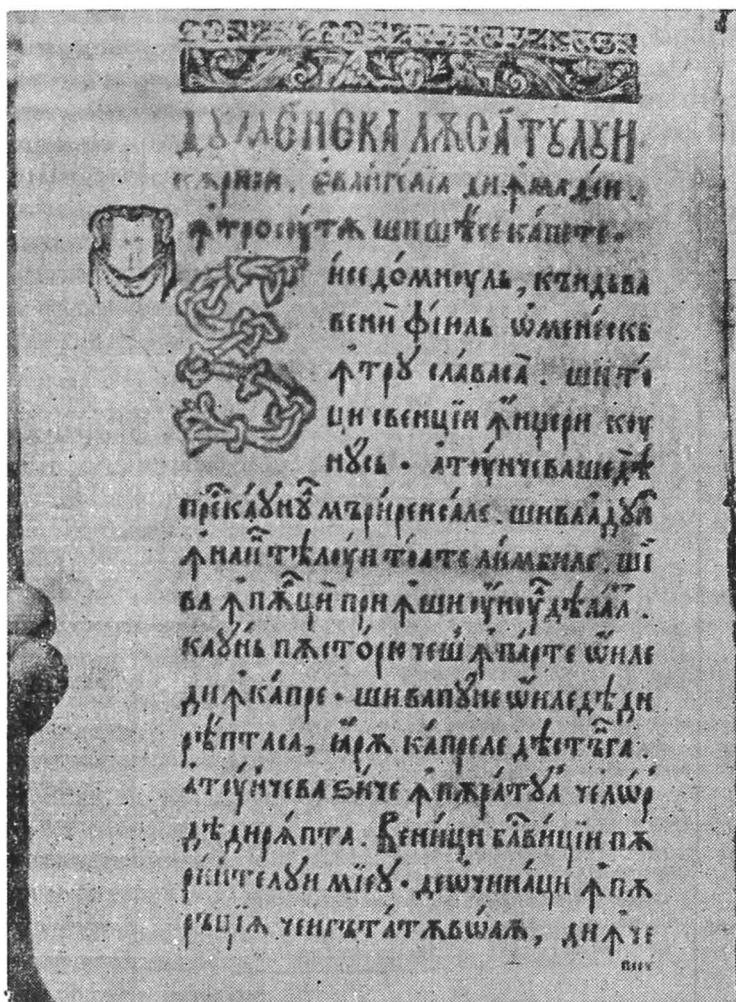 ДꙊМЕ́НЕКА ЛѪСА́ТꙊЛꙊИ
кѫрнїи. є҆ѵⷢ҇лїа ди ꙟ҆ ма́ѳеи.
ꙟ҆тро оу́тѫ шишѣ́се ка́пете.
и́седо́мноуль, къндьва
вени́ фїиль ѡ҆мене́скь
ꙟ҆трꙋ̀ сла́васа̀. шито́
ци свенці́и ꙟ҆ꙋерїи коу
нꙋсь. а҆тоу́нчева шедѣ́
пре скаꙋ́нꙋⷧ҇ мъри́реисале. шива а҆дꙋнⷩ҇
ꙟ҆наинⷮ҇тѣ лоу́и то́ате ли́мбиле. ши
ва ꙟ҆пѫⷬ҇ци́ при ꙟ҆ши оу́ноуⷧ҇ дѣ а҆ла́лⷧ҇.
каꙋ́нь пѫсто́рю чешⷨ҇ ꙟ҆па́рте ѡ҆́иле
ди ꙟ҆ ка́пре. шивапꙋ́не ѡ҆́иле дѣди
рѣ́птаса, і҆а́рѫ ка́преле дѣстъ́нга.
а҆тоу́нчева ѕи́че ꙟ҆пѫра́тꙋⷧ҇ челѡ́рⷬ҇
дѣди рѣ́пта. Вени́ци блⷭ҇ви́ціи пѫ
ри́нтелꙋи мїе́ꙋ. де ѡ҆чина́ци ꙟ҆пѫ
ръціѫ чеи гъта́тѫ вѡ́аѫ, ди ꙟ҆че